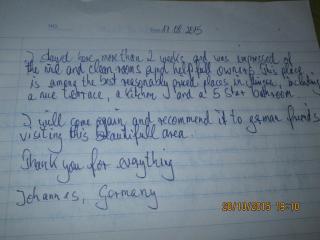 17.08.2015
I stayed here more than 2 weeks and was impressed of
the nice and clean rooms and helpfull owners. this place
is among the best reasonably priced places in including
a nice terrace, a kitchen and a 5 star bathroom
I will come again, and recommend it to german friends
visiting this beautifull area.
Thank you for everything
Johannes, Germany
28/10/2015 19:10